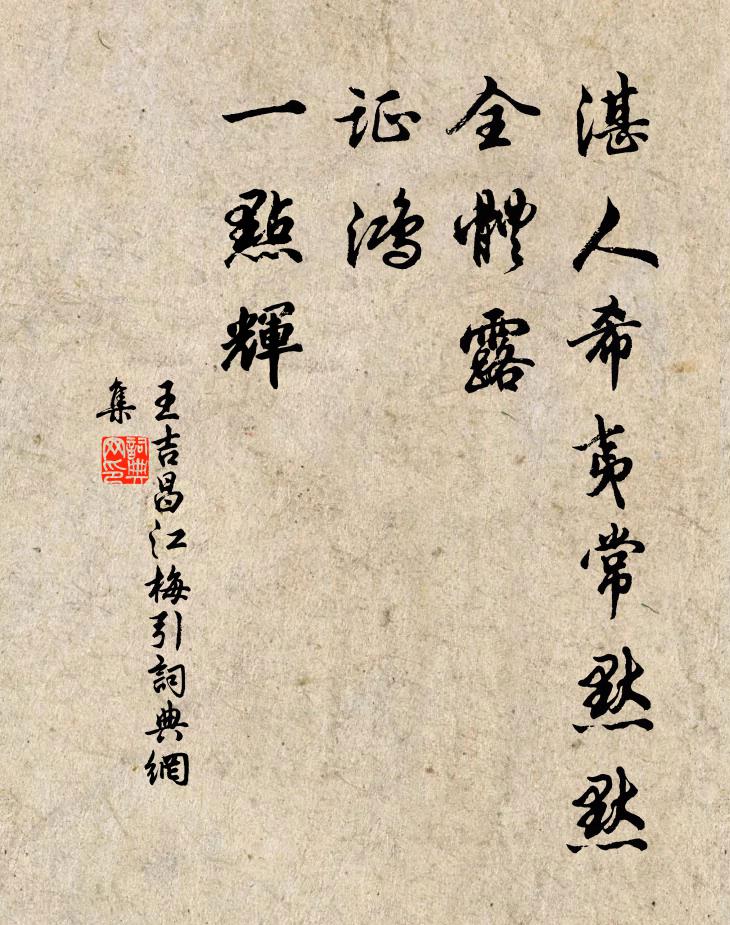 湛人希夷常默默
全體露
证鴻
一點輝
王吉昌江梅引詞典網
集
詞典
网印